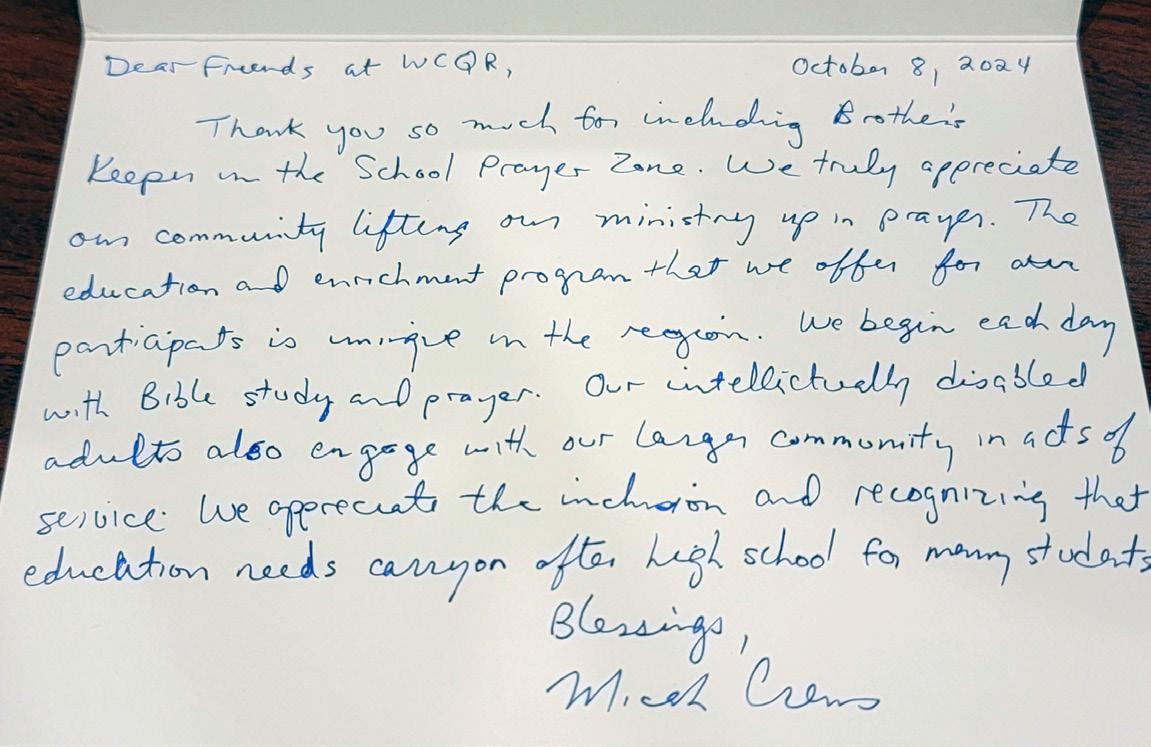 Dear Friends at WCQR,
October 8, 2024
Thank you so much for including Brother's
Keeper in the School Prayer Zone. We truly appreciate
our community lifting our ministry up in prayer. The
education and enrichment program that we offer for our
participants is unique in the region. We begin each day
with Bible study and prayer. Our intellictually disabled
adults also engage with our larger community in acts of
service. We appreciate the inclusion and recognizing that
education needs carryon after high school for many students
Blessings,
Micah Crews